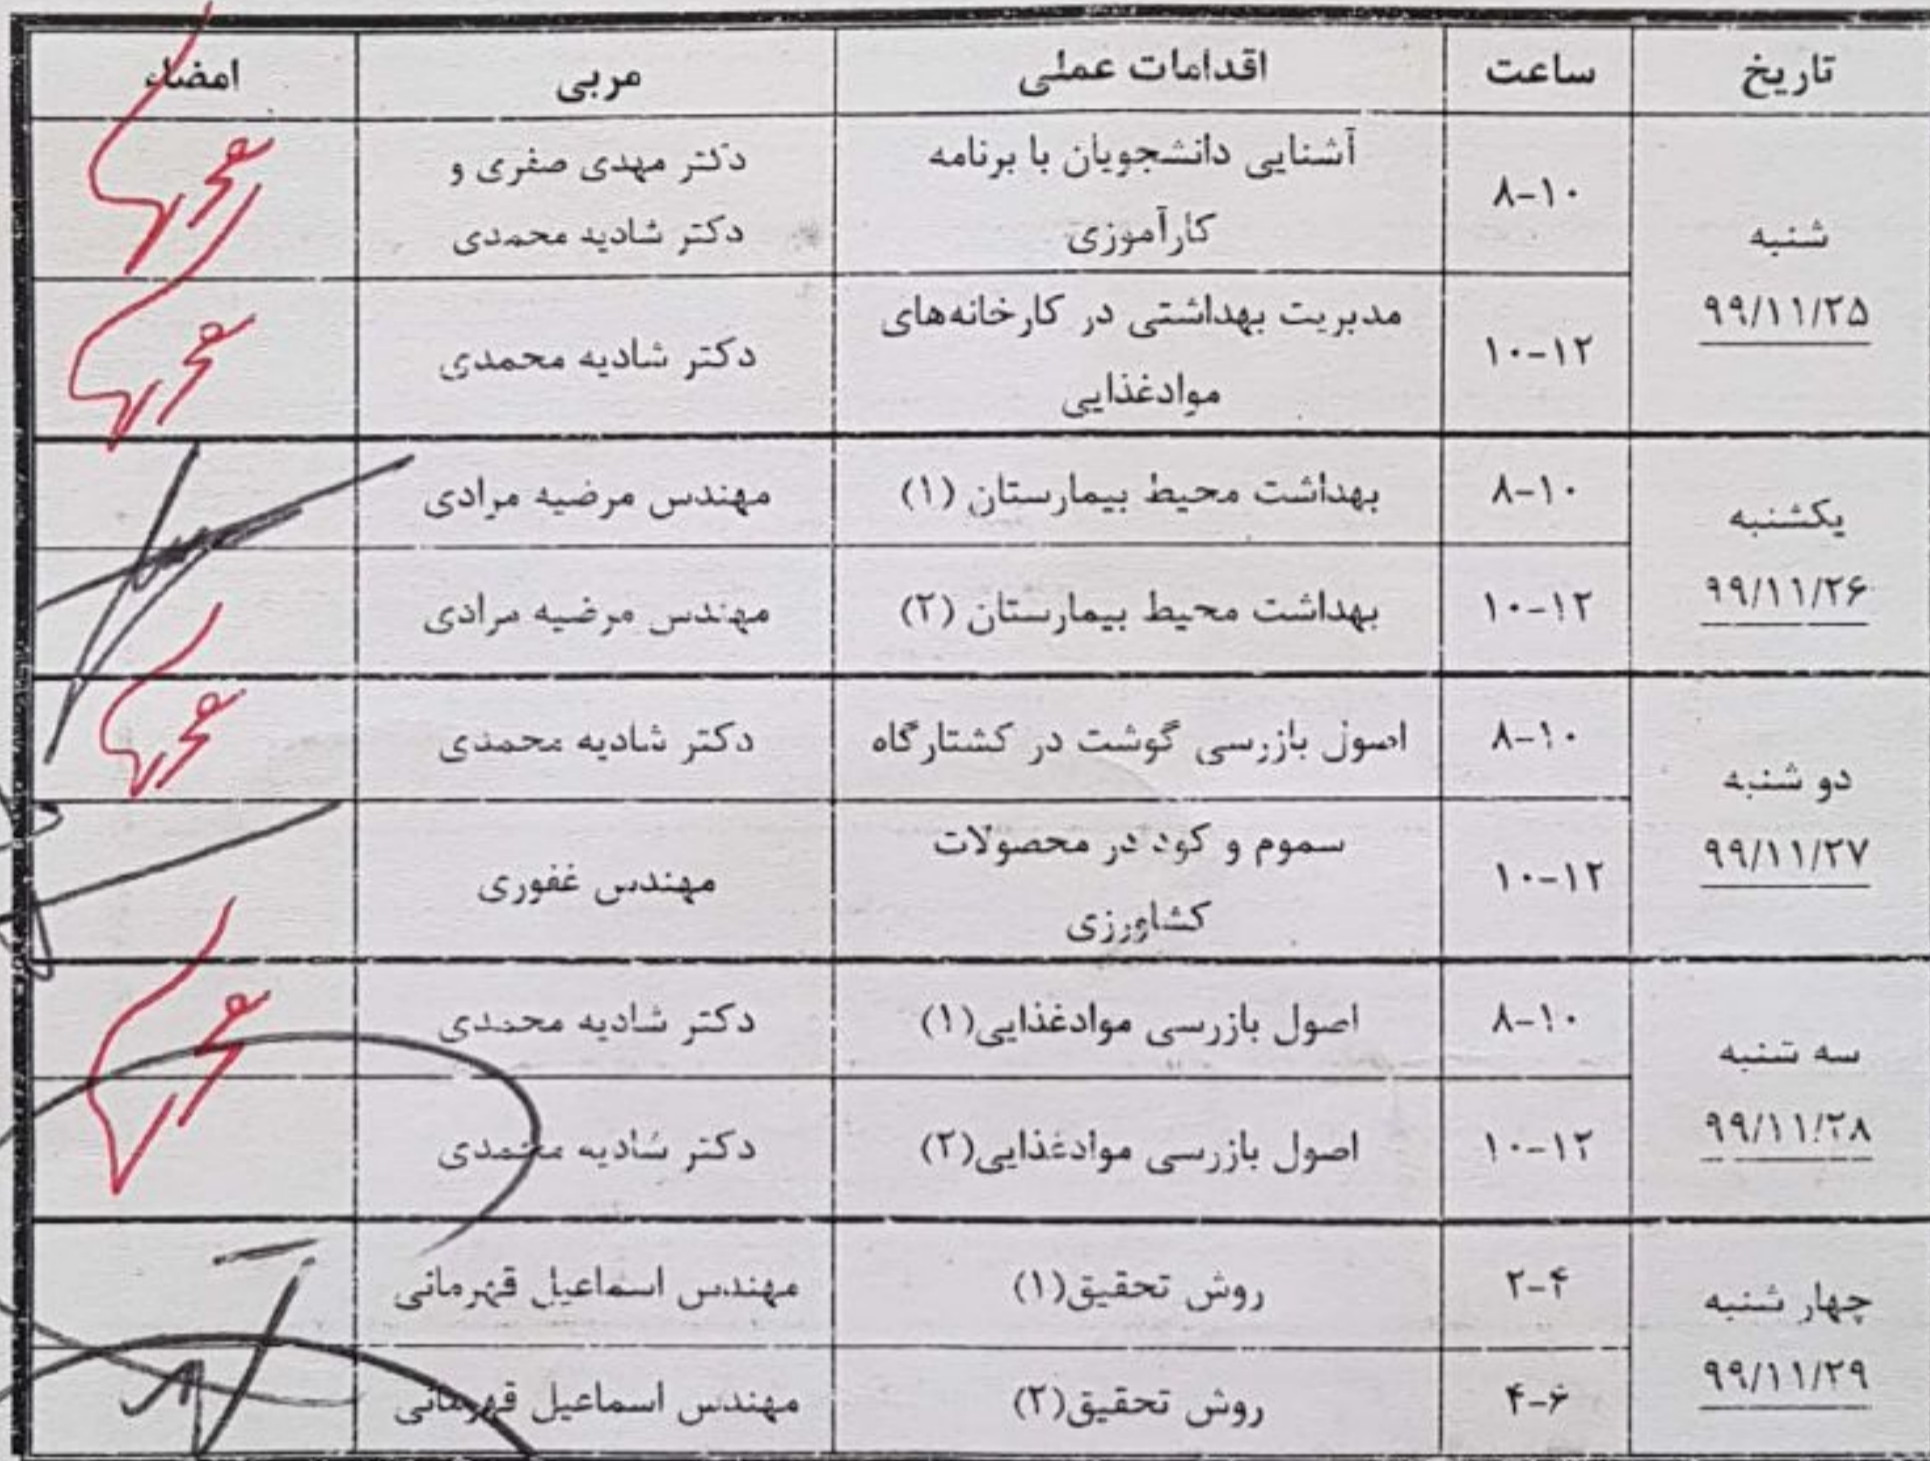 تاریخ ساعت اقدامات عملی مربی امضاء
شنبه
۹۹/۱۱/۲۵
۸-۱۰
آشنایی دانشجویان با برنامه
کارآموزی
دکتر مهدی صفری و
دکتر شادیه محمدی
۱۰-۱۲
مدیریت بهداشتی در کارخانه‌های
موادغذایی
دکتر شادیه محمدی
یکشنبه
۹۹/۱۱/۲۶
۸-۱۰ بهداشت محیط بیمارستان (۱) مهندس مرضیه مرادی
۱۰-۱۲ بهداشت محیط بیمارستان (۲) مهندس مرضیه مرادی
دو شنبه
۹۹/۱۱/۲۷
۸-۱۰ اصول بازرسی گوشت در کشتارگاه دکتر شادیه محمدی
۱۰-۱۲
سموم و کود در محصولات
کشاورزی
مهندس غفوری
سه شنبه
۹۹/۱۱/۲۸
۸-۱۰ اصول بازرسی موادغذایی(۱) دکتر شادیه محمدی
۱۰-۱۲ اصول بازرسی موادغذایی(۲) دکتر شادیه محمدی
چهار شنبه
۹۹/۱۱/۲۹
۲-۴ روش تحقیق(۱) مهندس اسماعیل قهرمانی
۴-۶ روش تحقیق(۲) مهندس اسماعیل قهرمانی